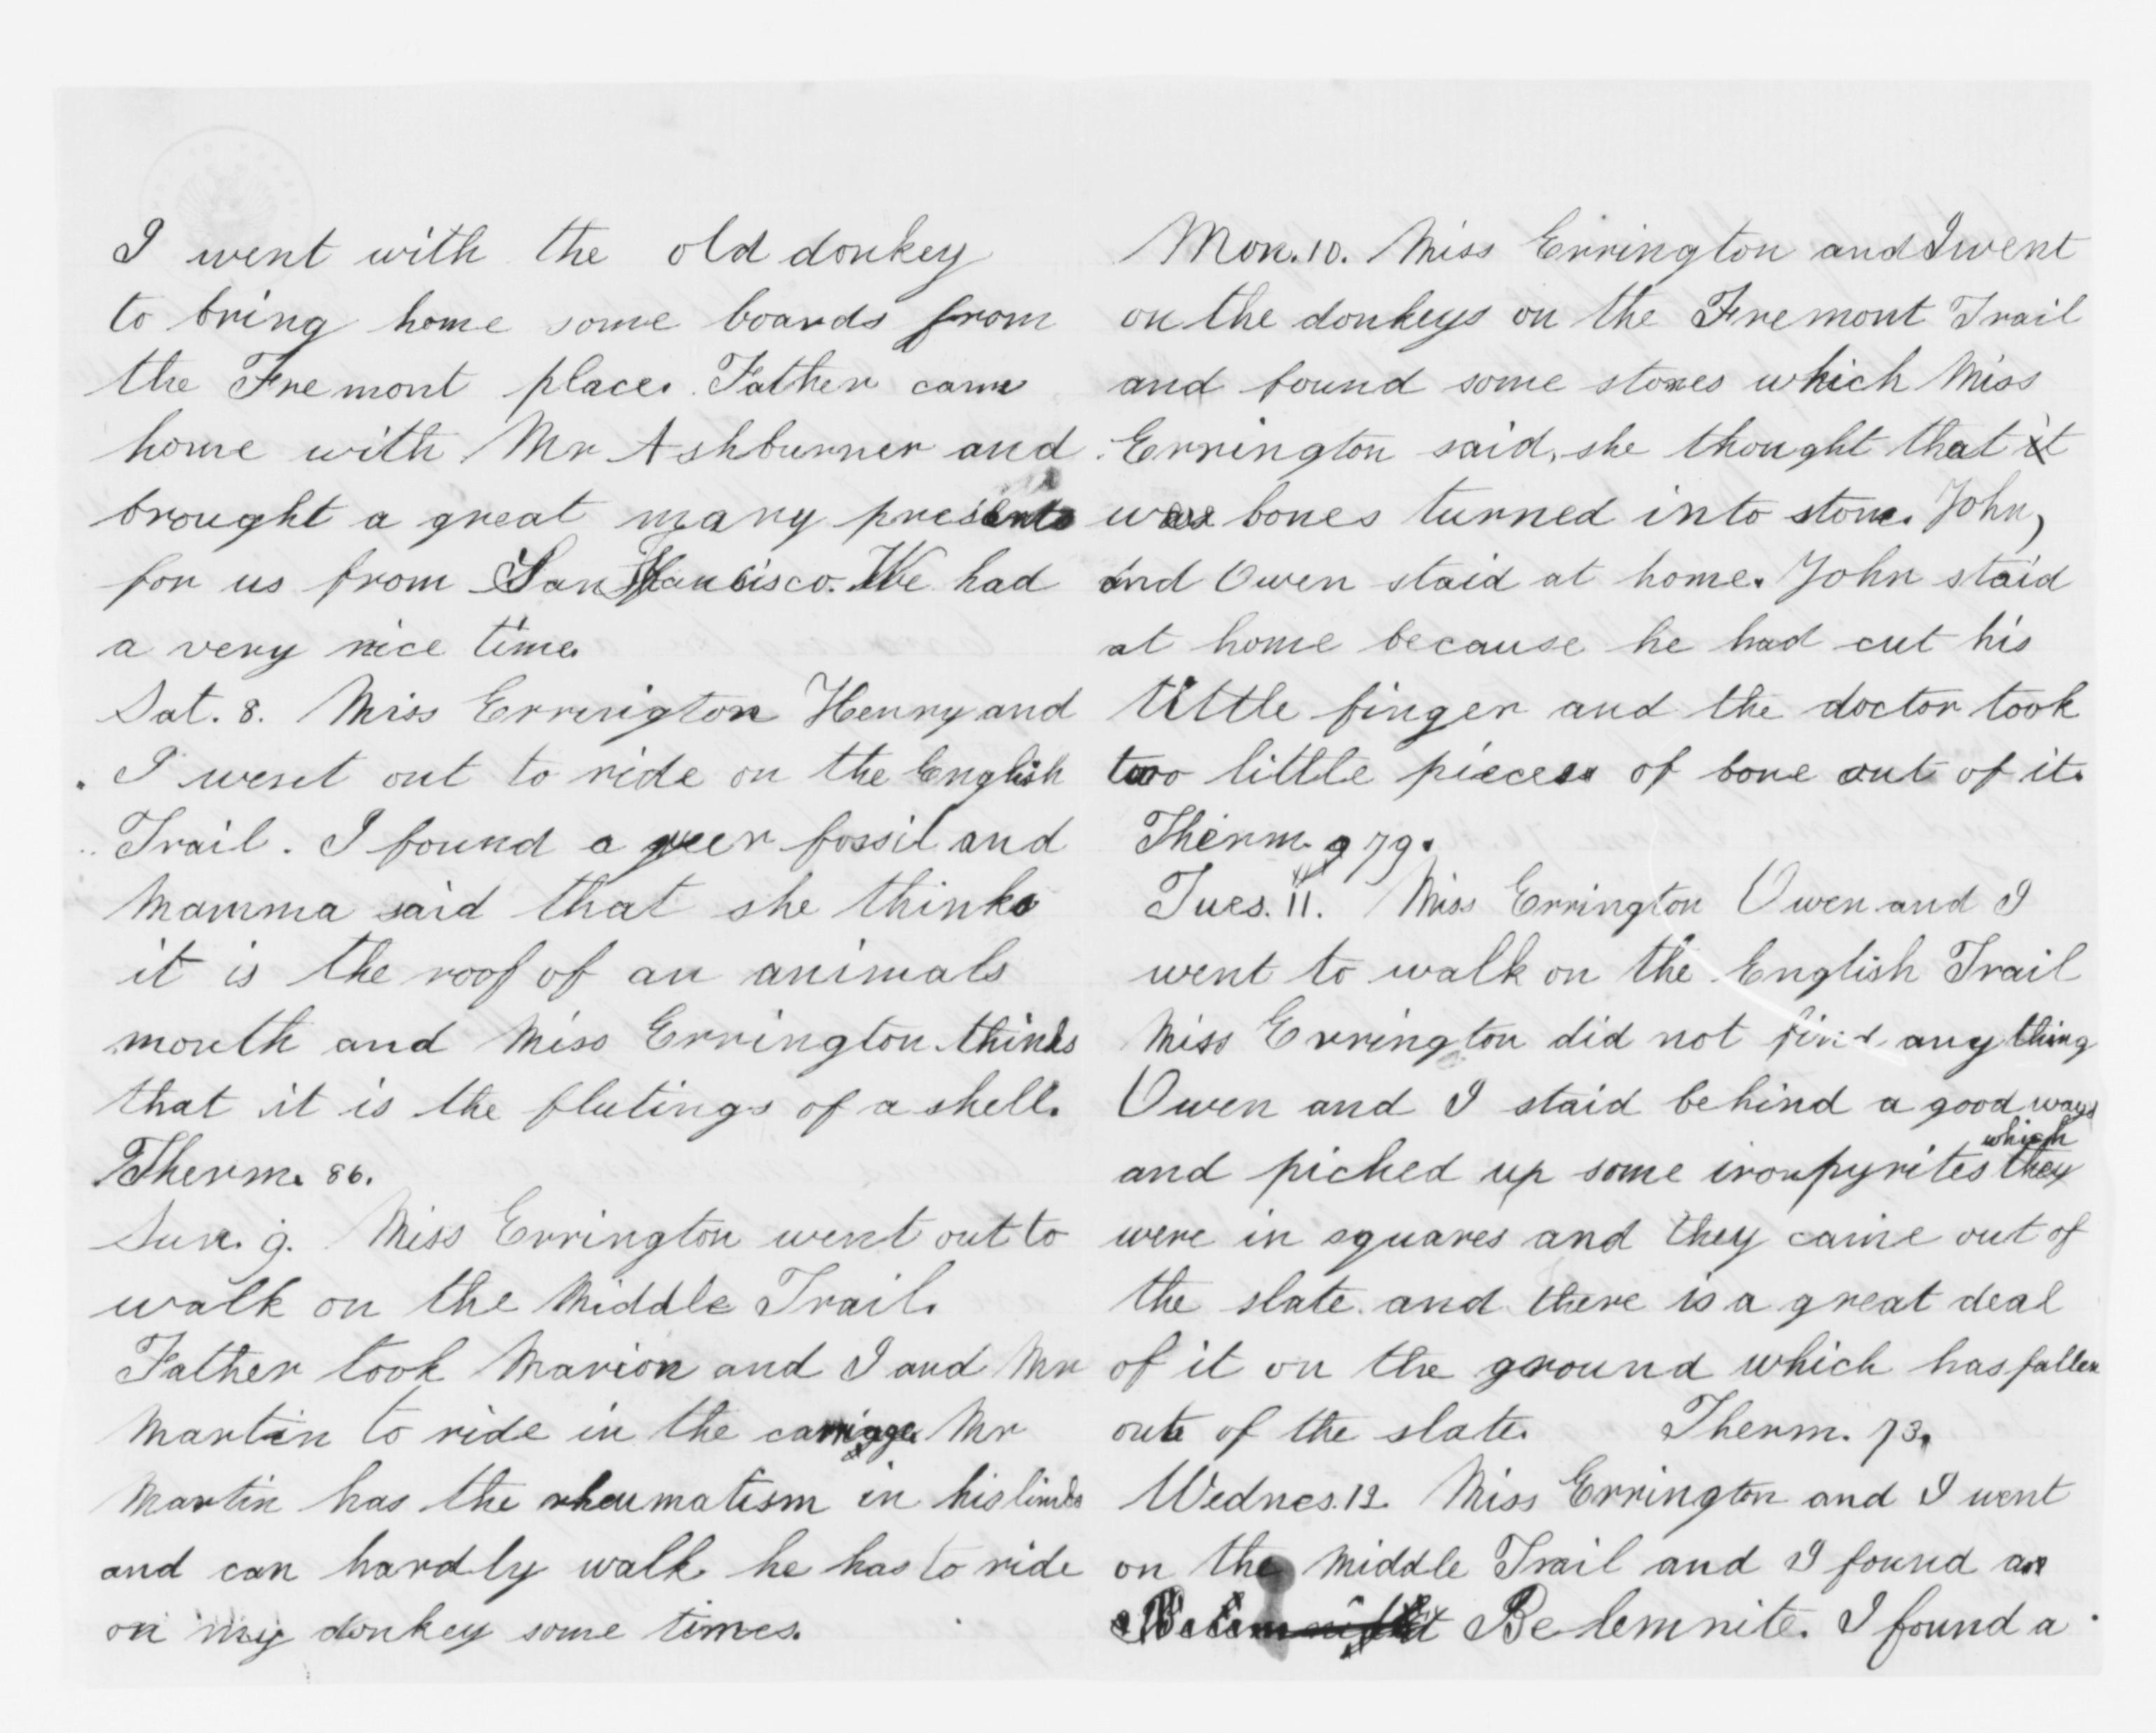 I went with the old donkey
to bring home some boards from
the Fremont place. Father came
home with Mr Ashburner and
brought a great many presents
for us from San Francisco. We had
a very nice time.
Sat. 8. Miss Errington Henry and
I went out to ride on the English
Trail. I found a queer fossil and
Mamma said that she thinks
it is the roof of an animals
mouth and Miss Errington thinks
that it is the flutings of a shell.
Therm. 86.
Sun. 9. Miss Errington went out to
walk on the Middle Trail.
Father took Marion and I and Mr
Martin to ride in the carriage. Mr
Martin has the rheumatism in his limbs
and can hardly walk he has to ride
on my donkey some times.
Mon. 10. Miss Errington and I went
on the donkeys on the Fremont Trail
and found some stones which Miss
Errington said, she thought that it
was bones turned into stone. John,
and Owen staid at home. John staid
at home because he had cut his
little finger and the doctor took
two little pieces of bone out of it.
Therm. 79.
Tues. 11. Miss Errington Owen and I
went to walk on the English Trail
Miss Errington did not find any thing
Owen and I staid behind a good ways
which
and picked up some iron pyrites they
were in squares and they came out of
the slate and there is a great deal
of it on the ground which has fallen
out of the slate. Therm. 73.
Wednes. 12. Miss Errington and I went
on the Middle Trail and I found a
Belemnite. I found a